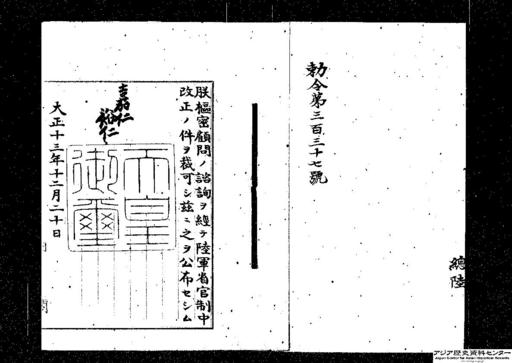 勅令第三百三十七號
總陸
朕樞密顧問ノ諮詢ヲ經テ陸軍省官制中
改正ノ件ヲ裁可シ茲ニ之ヲ公布セシム
嘉仁
裕仁
天皇
御璽
大正十三年十二月二十日
アジア歴史資料センター
Japan Center for Asian Historical Records